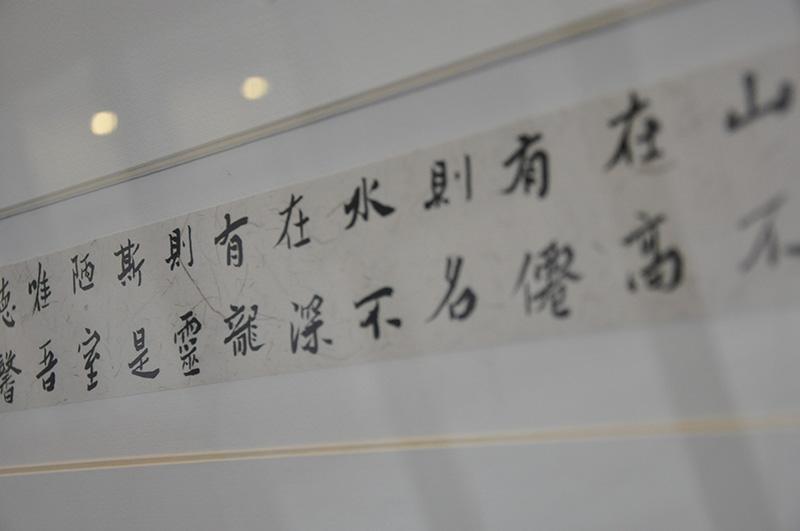 山不
在高
有僊
則名
水不
在深
有龍
則靈
斯是
陋室
唯吾
德馨